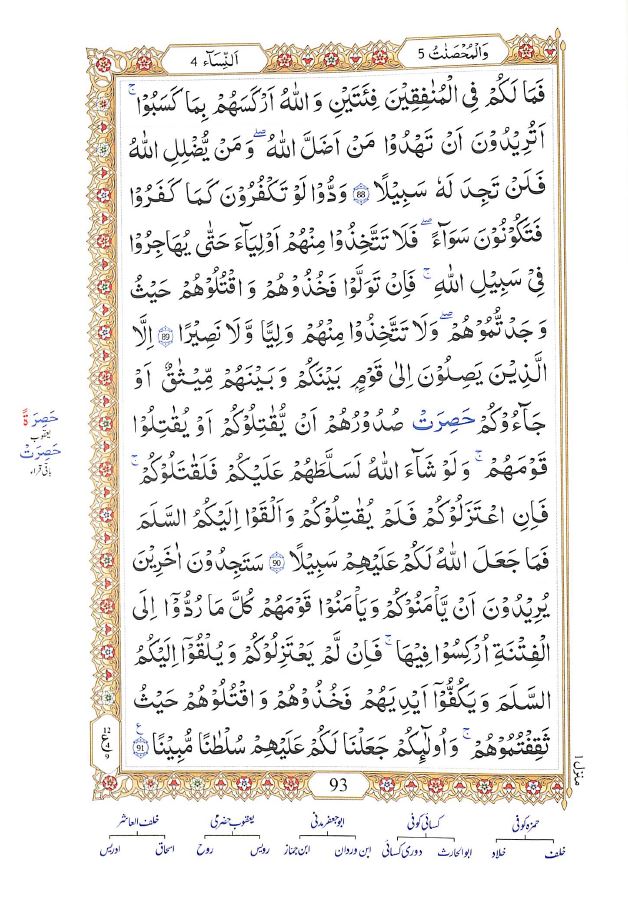 وَالْمُحْصَنٰتُ 5
اَلنِّسَآء 4
فَمَا لَكُمْ فِى الْمُنٰفِقِيْنَ فِئَتَيْنِ وَ اللّٰهُ اَرْكَسَهُمْ بِمَا كَسَبُوْا ۚ
اَتُرِيْدُوْنَ اَنْ تَهْدُوْا مَنْ اَضَلَّ اللّٰهُ ۖ وَ مَنْ يُّضْلِلِ اللّٰهُ
فَلَنْ تَجِدَ لَهٗ سَبِيْلًا 88 وَدُّوْا لَوْ تَكْفُرُوْنَ كَمَا كَفَرُوْا
فَتَكُوْنُوْنَ سَوَآءً ۖ فَلَا تَتَّخِذُوْا مِنْهُمْ اَوْلِيَآءَ حَتّٰى يُهَاجِرُوْا
فِىْ سَبِيْلِ اللّٰهِ ۚ فَاِنْ تَوَلَّوْا فَخُذُوْهُمْ وَ اقْتُلُوْهُمْ حَيْثُ
وَجَدْتُّمُوْهُمْ ۖ وَلَا تَتَّخِذُوْا مِنْهُمْ وَلِيًّا وَّلَا نَصِيْرًا 89 اِلَّا
الَّذِيْنَ يَصِلُوْنَ اِلٰى قَوْمٍۭ بَيْنَكُمْ وَبَيْنَهُمْ مِّيْثٰقٌ اَوْ
جَآءُوْكُمْ حَصِرَتْ صُدُوْرُهُمْ اَنْ يُّقٰتِلُوْكُمْ اَوْ يُقٰتِلُوْا
قَوْمَهُمْ ۚ وَلَوْ شَآءَ اللّٰهُ لَسَلَّطَهُمْ عَلَيْكُمْ فَلَقٰتَلُوْكُمْ ۚ
فَاِنِ اعْتَزَلُوْكُمْ فَلَمْ يُقٰتِلُوْكُمْ وَاَلْقَوْا اِلَيْكُمُ السَّلَمَ
فَمَا جَعَلَ اللّٰهُ لَكُمْ عَلَيْهِمْ سَبِيْلًا 90 سَتَجِدُوْنَ اٰخَرِيْنَ
يُرِيْدُوْنَ اَنْ يَّاْمَنُوْكُمْ وَيَاْمَنُوْا قَوْمَهُمْ كُلَّ مَا رُدُّوْٓا اِلَى
الْفِتْنَةِ اُرْكِسُوْا فِيْهَا ۚ فَاِنْ لَّمْ يَعْتَزِلُوْكُمْ وَيُلْقُوْٓا اِلَيْكُمُ
السَّلَمَ وَيَكُفُّوْٓا اَيْدِيَهُمْ فَخُذُوْهُمْ وَ اقْتُلُوْهُمْ حَيْثُ
ثَقِفْتُمُوْهُمْ ۚ وَاُولٰٓئِكُمْ جَعَلْنَا لَكُمْ عَلَيْهِمْ سُلْطٰنًا مُّبِيْنًا 91 ع
حَصِرَةً
يعقوب
حَصِرَتْ
باقی قراء
12
ع
4
9
منزل ۱
93
حمزہ کوفی
کسائی کوفی
ابو جعفر مدنی
یعقوب حضرمی
خلف العاشر
خلف
خلاد
ابو الحارث
دوری کسائی
ابن وردان
ابن جماز
رویس
روح
اسحاق
ادریس